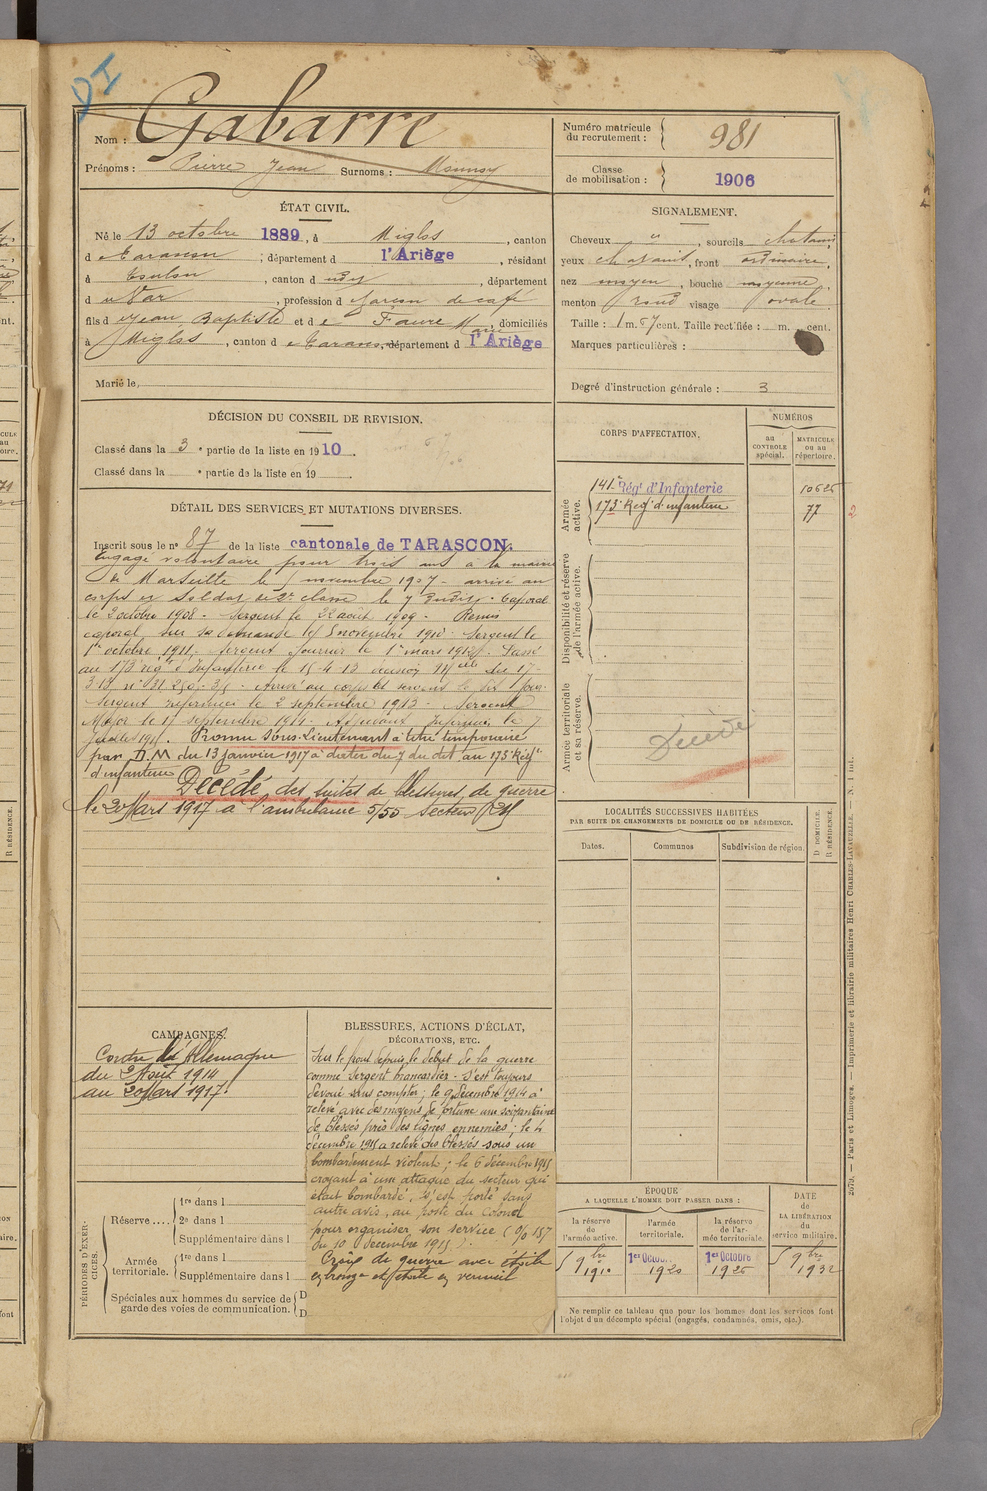 DI
Nom : Gabarre
Prénoms : Pierre Jean Surnoms :
Numéro matricule du recrutement : 981
Classe de mobilisation : 1906
ÉTAT CIVIL.
Né le 13 octobre 1889, à Miglos, canton
de Tarascon, département d l'Ariège, résidant
à Toulon, canton d , département
d u Var, profession d garçon de café
fils d e Jean Baptiste et d e Faure Marie, domiciliés
à Miglos, canton d e Tarascon, département d l'Ariège
Marié le,
SIGNALEMENT.
Cheveux , sourcils chatains
yeux chatains, front ordinaire,
nez moyen, bouche moyenne,
menton rond visage ovale
Taille : 1 m. 67 cent. Taille rectifiée : m. cent.
Marques particulières :
Degré d'instruction générale : 3
DÉCISION DU CONSEIL DE REVISION.
Classé dans la 3e partie de la liste en 1910
Classé dans la e partie de la liste en 19
DÉTAIL DES SERVICES ET MUTATIONS DIVERSES.
Inscrit sous le no 87 de la liste cantonale de TARASCON.
Engagé volontaire pour trois ans à la mairie
de Marseille le novembre 1907 - arrivé au
corps et soldat de 2e classe le 7 dudit. Caporal
le 2 octobre 1908. Sergent le 22 août 1909. Remis
caporal sur sa demande le 5 novembre 1910. Sergent le
1er octobre 1911. Sergent fourrier le 1er mars 191 . Passé
au 173e rég. d'Infanterie le 15-4-13
3-13 no 31 Arrivé au corps et
Sergent le 2 septembre 1913. Sergent
Major le 17 septembre 1914. Adjudant le 7
juillet 1915. Promu Sous-Lieutenant à titre temporaire
par D.M du 13 janvier 1917 à dater du 7 du dit au 173e Régt
d'infanterie Décédé des suites de blessures de guerre
le 20 Mars 1917 à l'ambulance 5/55 secteur
CORPS D'AFFECTATION.
NUMÉROS
au CONTROLE spécial.
MATRICULE ou au répertoire.
Armée active.
141e Régt d'Infanterie 10626
173e Régt d'infanterie 77
2
Disponibilité et réserve de l'armée active.
Armée territoriale et sa réserve.
Décédé
LOCALITÉS SUCCESSIVES HABITÉES
PAR SUITE DE CHANGEMENTS DE DOMICILE OU DE RÉSIDENCE.
Dates. Communes Subdivision de région. D DOMICILE. R RÉSIDENCE.
CAMPAGNES.
Contre l'Allemagne
du 2 Août 1914
au 20 Mars 1917.
BLESSURES, ACTIONS D'ÉCLAT,
DÉCORATIONS, ETC.
Sur le front depuis le début de la guerre
comme sergent brancardier - s'est toujours
dévoué sans compter; le 9 décembre 1914 a
relevé avec des moyens de fortune une soixantaine
de blessés près des lignes ennemies; le 4
décembre 1915 a relevé des blessés sous un
bombardement violent; le 6 décembre 1915
croyant à une attaque du secteur qui
était bombardé, s'est porté sans
autre avis, au poste du Colonel
pour organiser son service (O/0 157
du 10 Décembre 1915).
Croix de guerre avec étoile
en bronze et étoile en vermeil
PÉRIODES D'EXERCICES.
Réserve....
1re dans l
2e dans l
Supplémentaire dans l
Armée territoriale.
1re dans l
Supplémentaire dans l
Spéciales aux hommes du service de garde des voies de communication. D D
ÉPOQUE
A LAQUELLE L'HOMME DOIT PASSER DANS :
DATE DE LA LIBÉRATION du service militaire.
la réserve de l'armée active.
l'armée territoriale.
la réserve de l'armée territoriale.
9bre 1910
1er Octobre 1920
1er Octobre 1926
9bre 1932
Ne remplir ce tableau que pour les hommes dont les services font
l'objet d'un décompte spécial (engagés, condamnés, omis, etc.).
Paris et Limoges. — Imprimerie et librairie militaires Henri CHARLES-LAVAUZELLE. — N. 1 int.